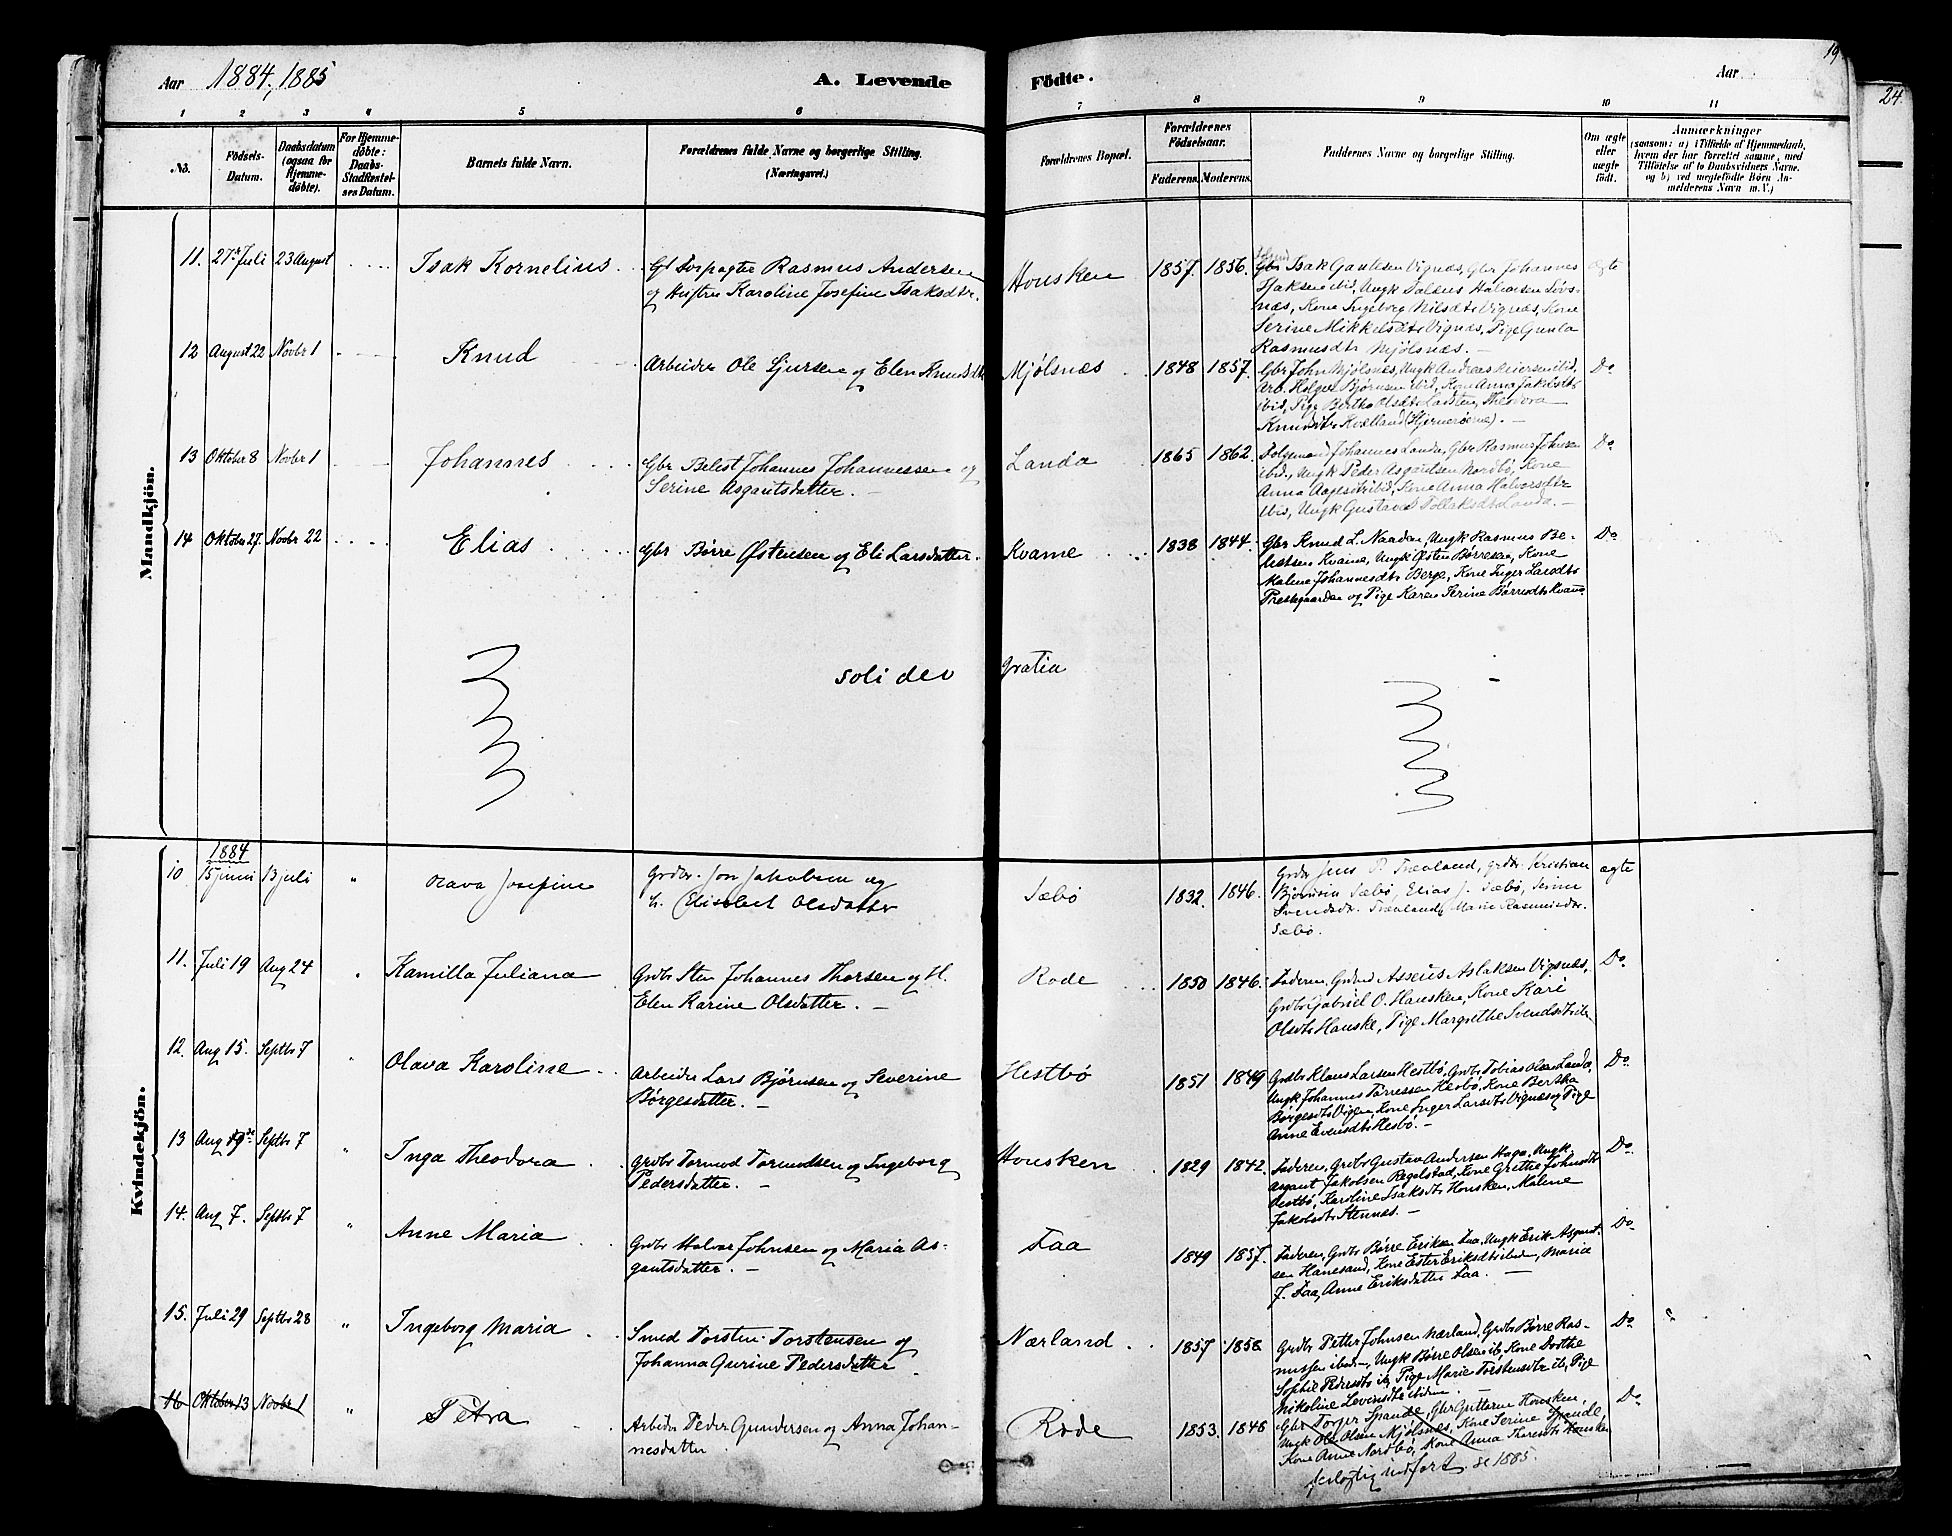 Aar 1884, 1885 A. Levende Födte. Aar 19
24
1 2 3 4 5 6 7 8 9 10 11
No.
Födsels-Datum.
Daabsdatum (ogsaa for Hjemmedöbte).
For Hjemmedöbte: Daabs-Stadfæstelses Datum.
Barnets fulde Navn.
Forældrenes fulde Navne og borgerlige Stilling. (Næringsvei.)
Forældrenes Bopæl.
Forældrenes Födselsaar.
Faderens. Moderens.
Faddernes Navne og borgerlige Stilling.
Om ægte eller uægte födt.
Anmærkninger
(saasom: a) i Tilfælde af Hjemmedaab,
hvem der har forrettet samme, med
Tilföielse af to Daabsvidners Navne.
og b) ved uægtefödte Börn Anmelderens Navn m. V.)
Mandkjön.
11. 27de Juli 23 August Isak Kornelius Rasmus Andersen
og Hustru Karoline Josefine Isaksdtr. Housken 1857. 1856. Gbr Isak Gautesen Vignæs, Gbr Johannes ægte
Isaksen ibid, Ungk Halvorsen Løvs-
næs, Kone Ingeborg Nilsdtr Vignæs, Kone
Serine Mikkelsdtr Vignæs, Pige Gunla
Rasmusdtr Mjølsnæs. —
12 August 22 Novbr 1 Knud Arbeider Ole Sjursen og Elen Knudsdtr Mjölsnæs 1848 1857. Gbr John Mjølsnæs, Ungk Andreas ibid, Do
Arb. Holger Bjørnsen ibid, Kone Anna Jakobsdtr
ibid, Pige Berthe Olsdtr Ladsten, Theodora
Knudsdtr Kvætland (Hjernerøerne). —
13 Oktober 8 Novbr 1 Johannes Gbr Belest Johannes Johannessen og
Serine Asgautsdatter. — Landa 1865 1862. Folgemand Johannes Landa, Gbr Rasmus Johnsen Do
ibid., Ungk Peder Asgautsen Nordbö, Kone
Anna Aagesdtr ibid, Kone Anna Halvorsdtr
ibid, Ungk Gustava Tollaksdtr Landa. —
14 Oktober 27. Novbr 22 Elias Gbr Börre Østensen og Eli Larsdatter. Kvame 1838 1844. Gbr Knud L. Naaden, Ungk Rasmus Be-
lestsen Kvame, Ungk Østen Børresen, Kone Do
Malene Johannesdtr Berge, Kone Inger Larsdtr
Prestegaarden og Pige Karen Serine Börresdtr Kvame
soli deo gratia
Kvindekjön.
1884
10 15 juni 13 juli " Olava Josefine Grdbr. Jon Jakobsen og
h. Elisabet Olsdatter Sæbö 1832. 1846. Grdbr Jens P. Træeland, grdbr. Kristian ægte
Sæbö, Elias J. Sæbö, Serine
Svendsdtr. Træeland, Marie Rasmusdtr.
Sæbö.
11. Juli 19 Aug 24 " Kamilla Juliana Grdbr Sten Johannes Thorsen og H.
Elen Karine Olsdatter. — Rode 1850 1846. Faderen, Grdbr Asseus Aslaksen Vignæs, Do
Grdbr Gabriel O. Hausken, Kone Kari
Olsdtr Hauske, Pige Margrethe Svendsdtr
12. Aug 15. Septbr 7 " Olava Karoline Arbeider Lars Björnsen og Severine
Börgesdatter. — Hestbö 1851 1849 Grdbr Klaus Larsen Hestbö, Grdbr Tobias Olsen Landa, Do
Ungk Johannes Hesbö, Kone Bertha
Börgesdtr Vigen, Kone Inger Larsdtr Vignæs og Pige
Anne Evensdtr Hesbö. —
13 Aug 19de Septbr 7 " Inga Theodora Grdbr Tormod Tormodsen og Ingeborg
Pedersdatter. — Housken 1829 1842. Faderen, Grdbr Gustav Andersen Haga, Ungk Do
Asgaut Jakobsen Regelstad, Kone Grethe Johnsdtr
Vestbö, Karoline Isaksdtr Housken, Malene
Jakobsdtr Stennæs. —
14. Aug 7. Septbr 7 " Anne Maria Grdbr Halvor Johnsen og Maria As-
gautsdatter. — Faa 1849 1857. Faderen, Grdbr Börre Eriksen Faa, Ungk Erik Asgaut- Do
sen Hanesand, Kone Ester Eriksdtr ibidem, Maria
J. Faa, Anne Eriksdatter Faa. —
15. Juli 29 Septbr 28 " Ingeborg Maria Smed Torsten Torstensen og
Johanna Gurine Pedersdatter. Nærland. 1857 1858 Grdbr Petter Johnsen Nærland, Grdbr Börre Ras- Do
mussen ibid., Ungk Börre Olsen ib, Kone Dorthe
Sophie Pedersdtr ib, Pige Marie Torstensdtr ib, Pige
Nikoline Levinsdtr ibidem. —
16 Oktober 13 Novbr 1 " Petra Arbeider Peder Gundersen og Anna Johan-
nesdatter. Rode 1853. 1848 Gbr Torger Spande, Gbr Guttorm Housken, Do
Ungk Ole Olsen Mjölsnæs, Kone Serine Spande,
Kone Anne Nordbö, Kone Anna Theresdtr Housken
feilagtig indført, se 1885.